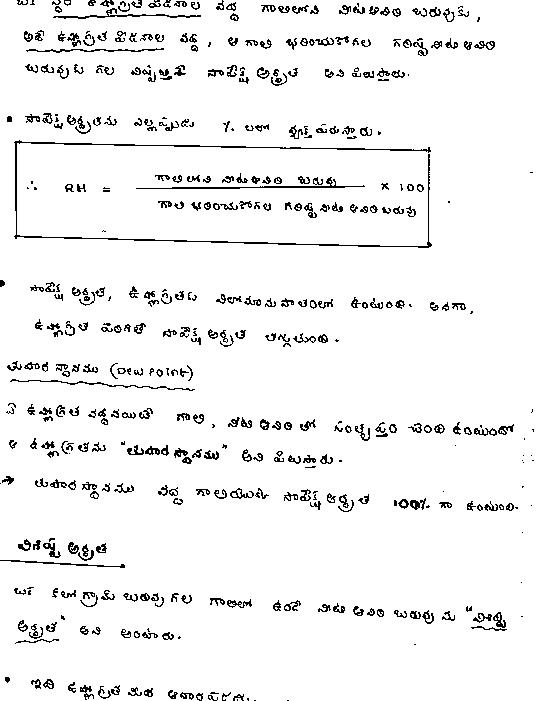 ఒక స్థిర ఉష్ణోగ్రత పీడనాల వద్ద గాలిలోని నీటిఆవిరి బరువుకు,
అదే ఉష్ణోగ్రత పీడనాల వద్ద, ఆ గాలి భరించుకోగల గరిష్ట నీటి ఆవిరి
బరువుకు గల నిష్పత్తినే సాపేక్ష ఆర్ద్రత అని పిలుస్తారు.
• సాపేక్ష ఆర్ద్రతను ఎల్లప్పుడు % లలో వ్యక్తపరుస్తారు.
∴ RH = గాలిలోని నీటిఆవిరి బరువు × 100
గాలి భరించుకోగల గరిష్ట నీటి ఆవిరి బరువు
• సాపేక్ష ఆర్ద్రత, ఉష్ణోగ్రతకు విలోమానుపాతంలో ఉంటుంది. అనగా,
ఉష్ణోగ్రత పెరిగితే సాపేక్ష ఆర్ద్రత తగ్గుతుంది.
తుషార స్థానము (Dew Point)
ఏ ఉష్ణోగ్రత వద్దనయితే గాలి, నీటి ఆవిరి తో సంతృప్తం చెంది ఉంటుందో
ఆ ఉష్ణోగ్రతను "తుషార స్థానము" అని పిలుస్తారు.
→ తుషార స్థానము వద్ద గాలియొక్క సాపేక్ష ఆర్ద్రత 100% గా ఉంటుంది.
విశిష్ట ఆర్ద్రత
ఒక కిలోగ్రామ్ బరువు గల గాలిలో ఉండే నీటి ఆవిరి బరువు ను "విశిష్ట
ఆర్ద్రత" అని అంటారు.
• ఇది ఉష్ణోగ్రత మీద ఆధారపడదు.